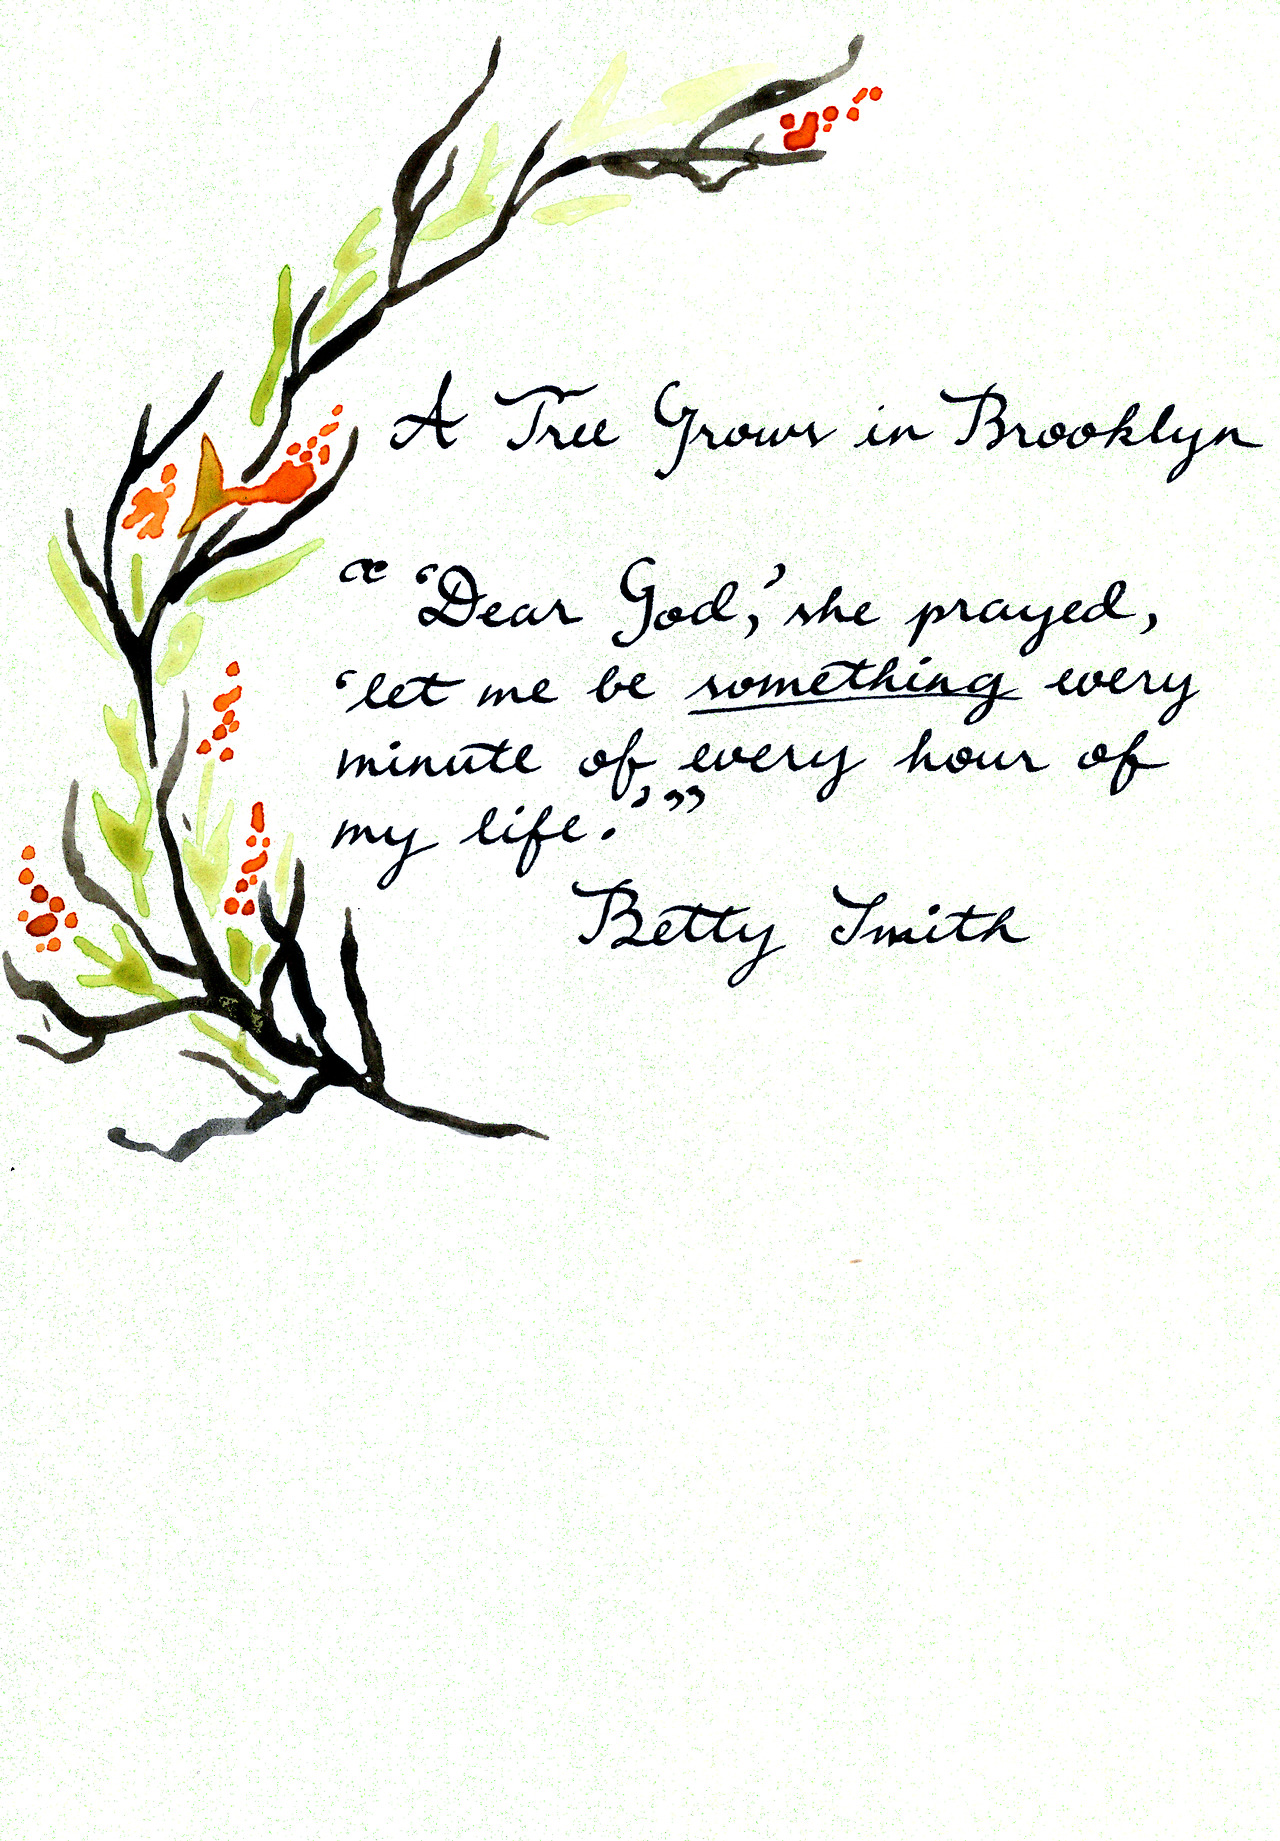 A Tree Grows in Brooklyn
“ ‘Dear God,’ she prayed,
‘let me be something every
minute of every hour of
my life.’”
Betty Smith